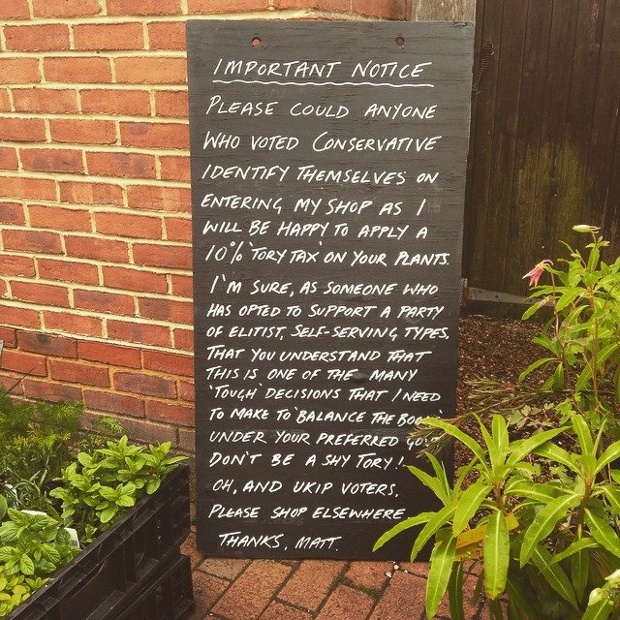 IMPORTANT NOTICE
PLEASE COULD ANYONE
WHO VOTED CONSERVATIVE
IDENTIFY THEMSELVES ON
ENTERING MY SHOP AS I
WILL BE HAPPY TO APPLY A
10% 'TORY TAX' ON YOUR PLANTS.
I'M SURE, AS SOMEONE WHO
HAS OPTED TO SUPPORT A PARTY
OF ELITIST, SELF-SERVING TYPES,
THAT YOU UNDERSTAND THAT
THIS IS ONE OF THE MANY
'TOUGH' DECISIONS THAT I NEED
TO MAKE TO 'BALANCE THE BOOKS'
UNDER YOUR PREFERRED
DON'T BE A SHY TORY!
OH, AND UKIP VOTERS,
PLEASE SHOP ELSEWHERE
THANKS, MATT.